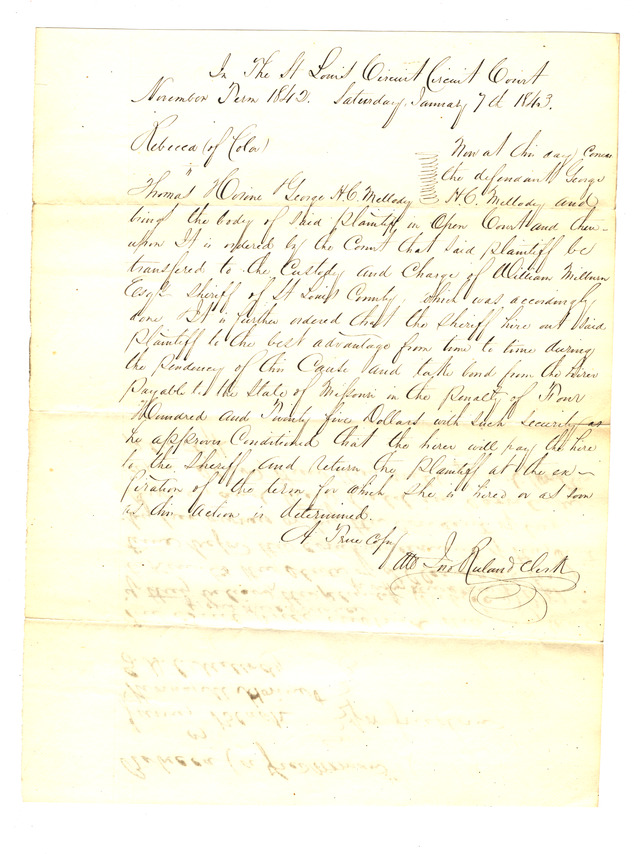 In The St Louis Circuit Circuit Court
November Term 1842. Saturday, January 7th 1843.
Rebecca (of Color)
vs
Thomas Horine & George H.C. Mellody
Now at this day comes
the defendant George
H.C. Mellody and
bring the body of said plaintiff in Open Court and there-
upon It is ordered by the Court that said plaintiff be
transferred to the Custody and Charge of William Milburn
Esqr Sheriff of St Louis County, which was accordingly
done It is further ordered that the Sheriff hire out said
plaintiff to the best advantage from time to time during
the pendency of this Cause and take bond from the hirer
payable to the State of Missouri in the Penalty of Four
Hundred and Twenty five Dollars with such security as
he approves Conditioned that the hirer will pay the hire
to the Sheriff and return the plaintiff at the ex-
piration of the term for which she is hired or as soon
as this action is determined.
A True copy
Att Jno Ruland Clerk